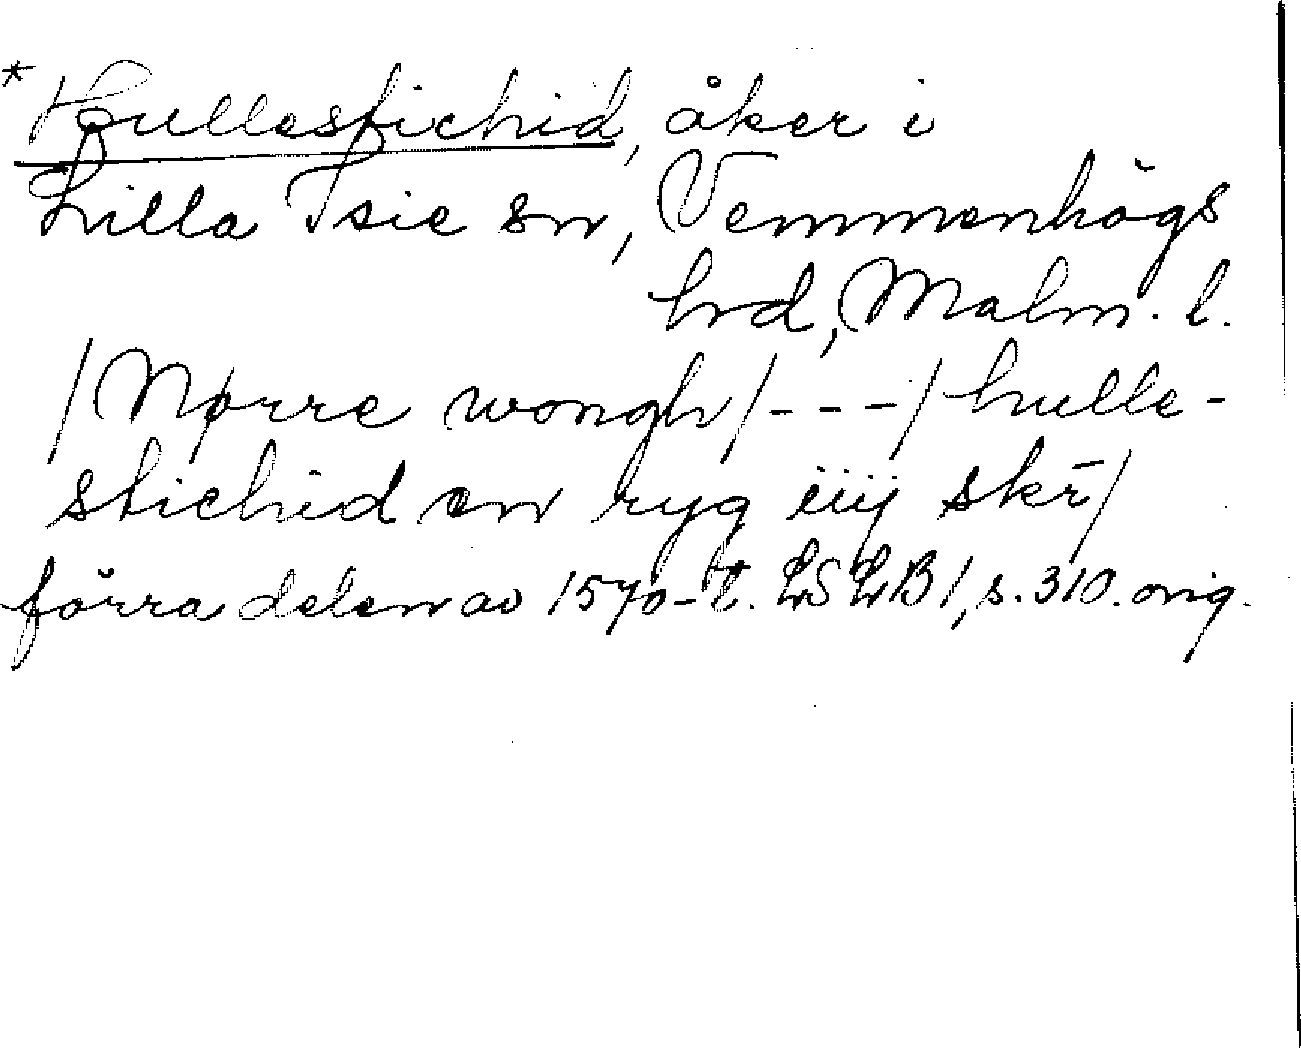 *Hullestichid, åker i
Lilla Isie sn, Vemmenhögs
hrd, Malm. l.
/Nørre wongh/---/hulle-
stichid en ryg iiij skr̄/
förra delen av 1570-t. LSLB1, s. 310. orig.